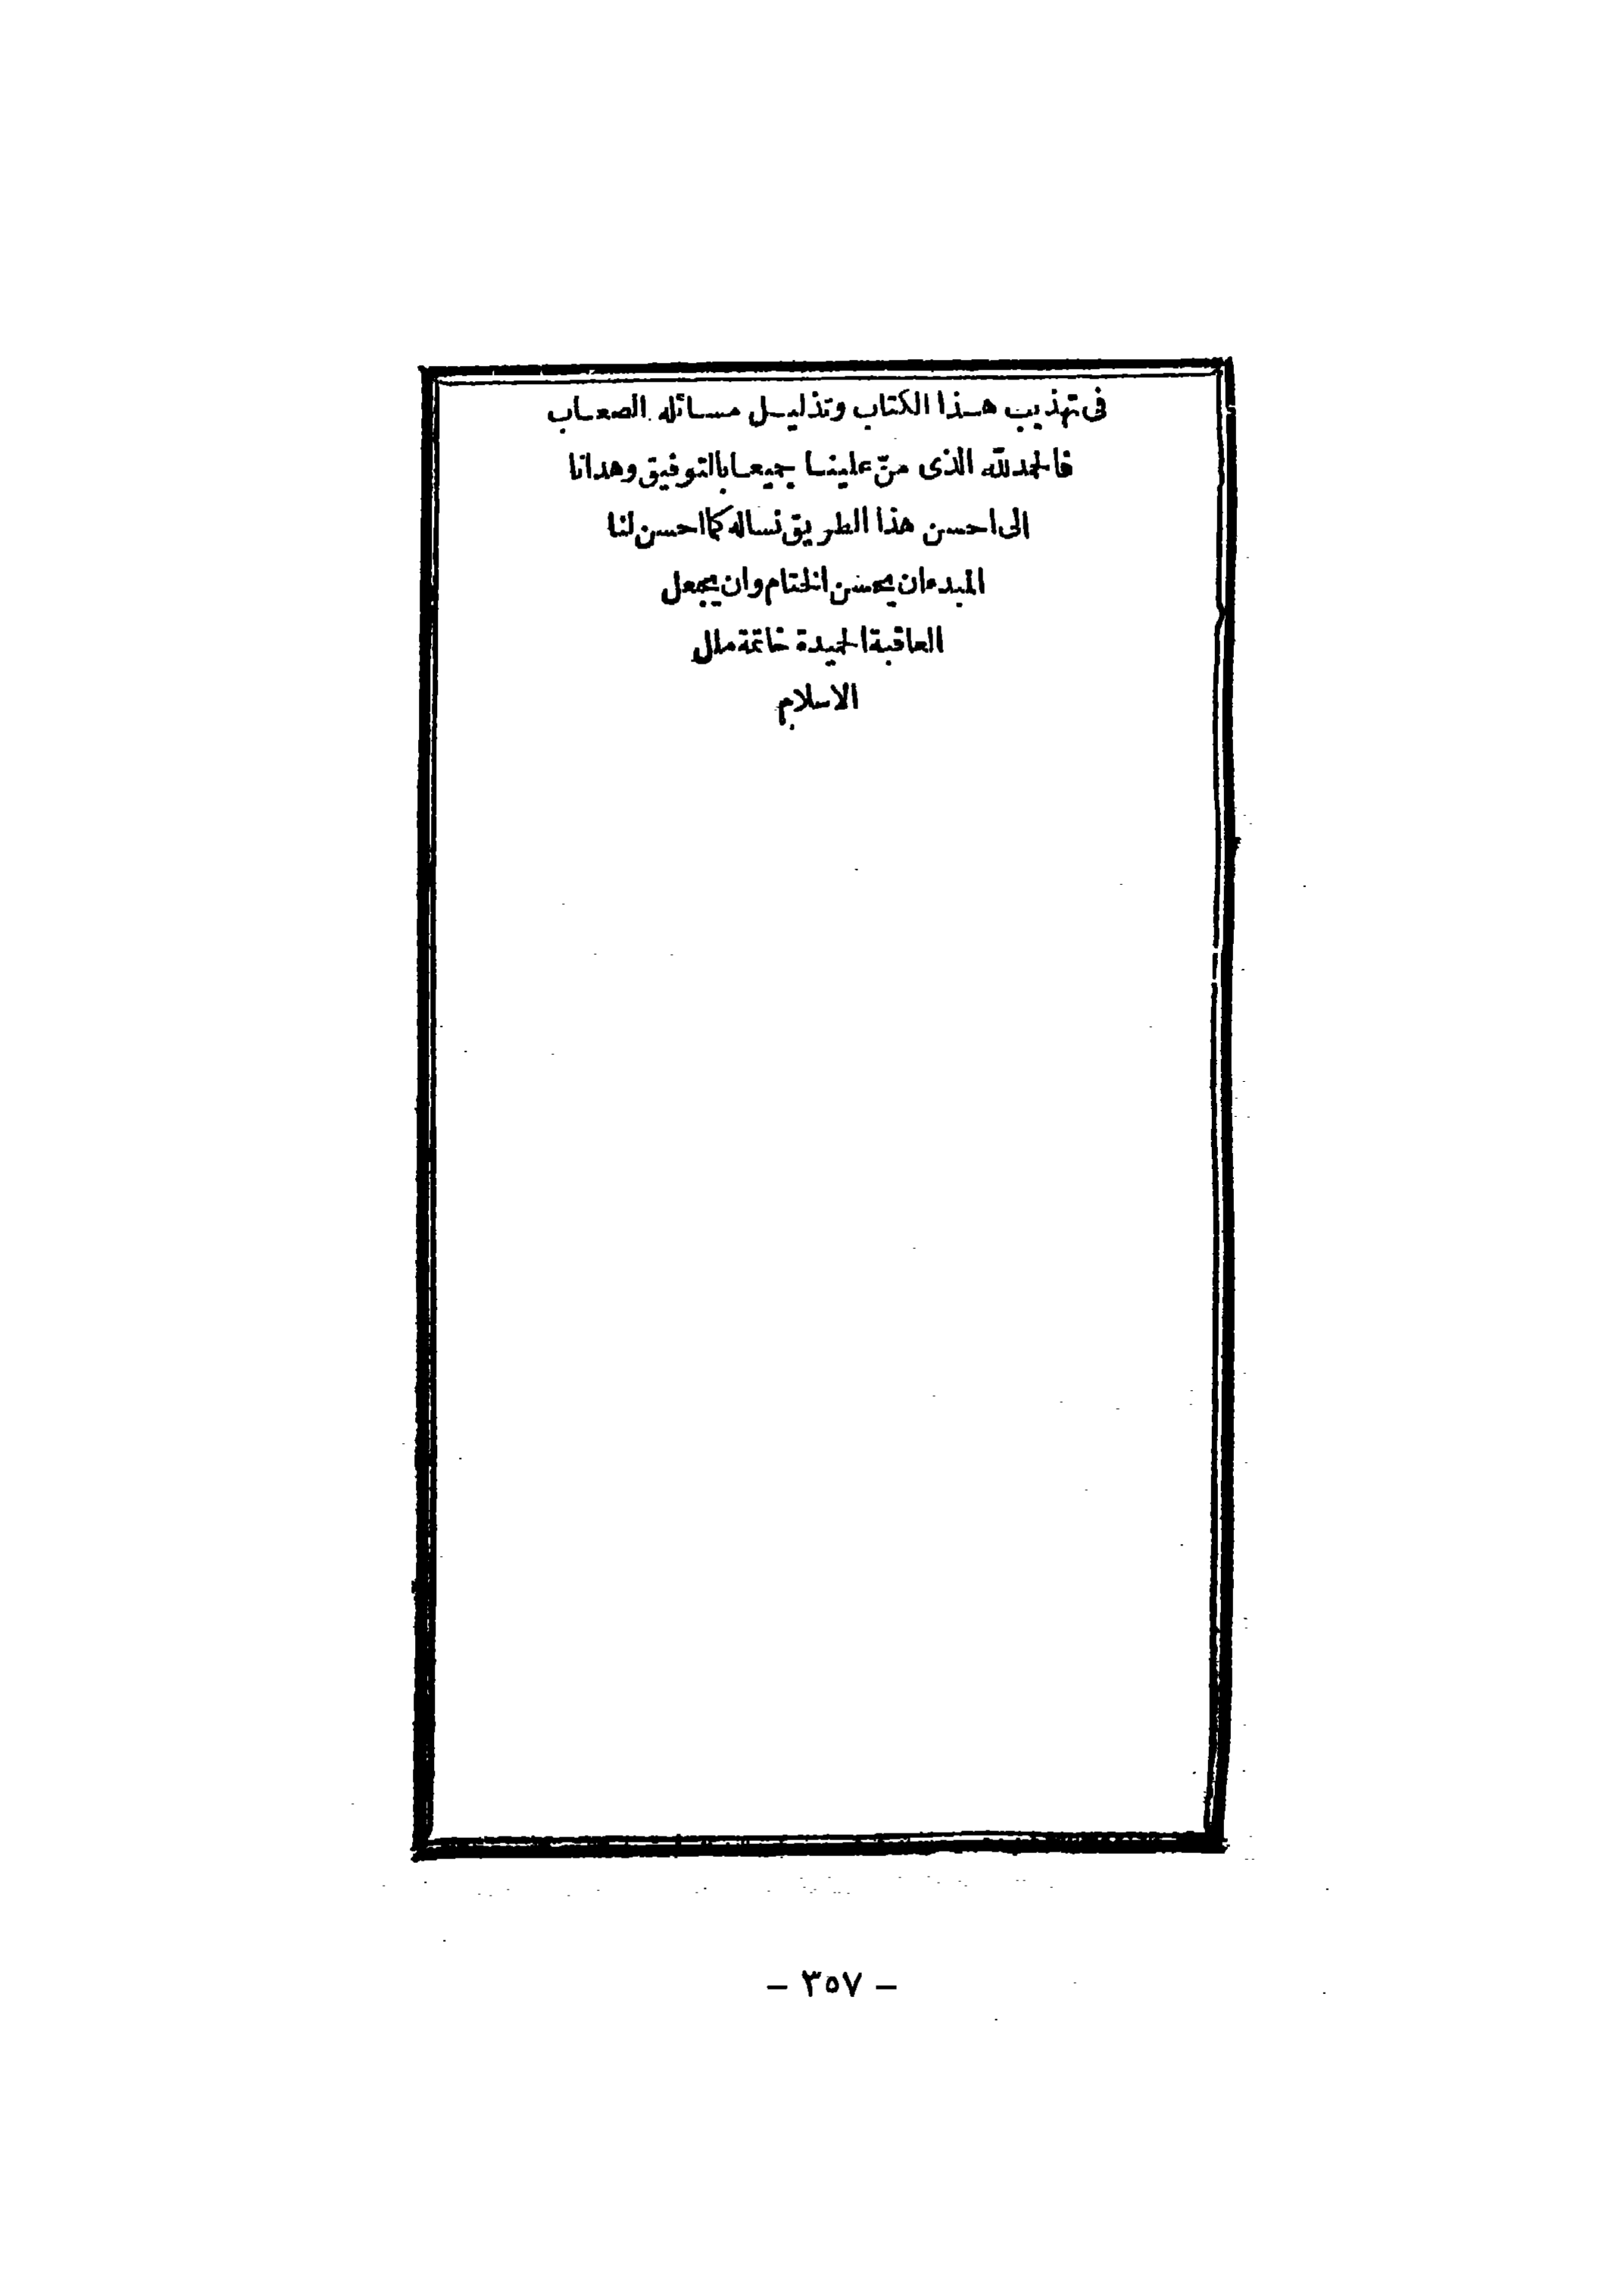 فى تهذيب هذا الكتاب وتذليل مسائله الصعاب
فالحمد لله الذى منّ علينا جميعا بالتوفيق وهدانا
الى احسن هذا الطريق نساله كما احسن لنا
المبدء ان يحسن الختام وان يجعل
العاقبة الحميدة خاتمة ملل
الاسلام
– ٣٥٧ –